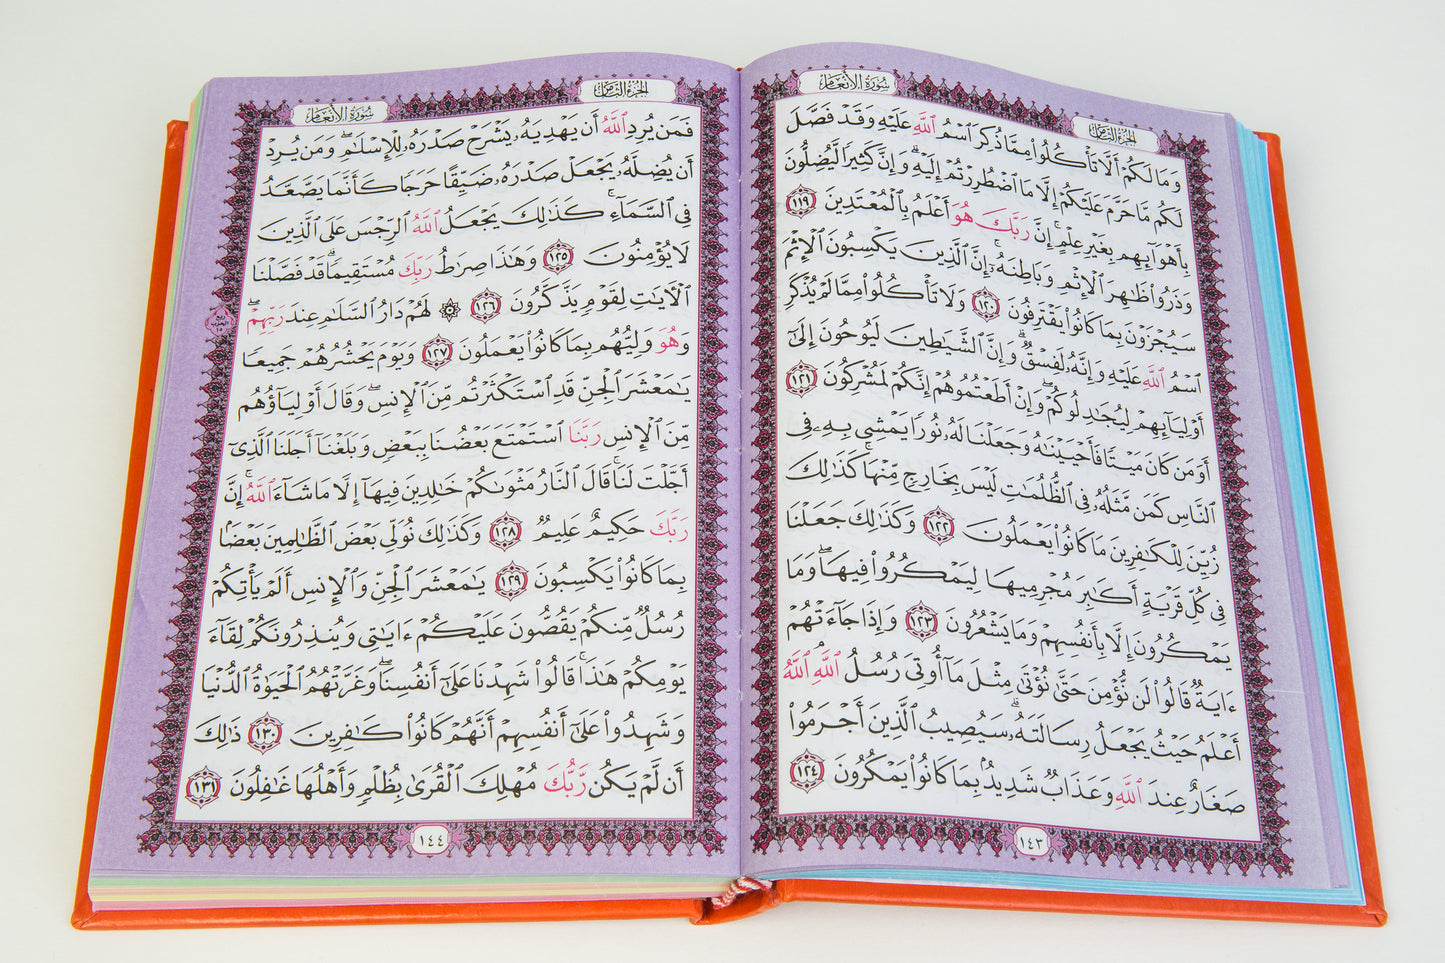 سُورَةُ الأَنْعَام
الجُزْءُ الثَّامِن
وَمَا لَكُمْ أَلَّا تَأْكُلُوا۟ مِمَّا ذُكِرَ ٱسْمُ ٱللَّهِ عَلَيْهِ وَقَدْ فَصَّلَ
لَكُم مَّا حَرَّمَ عَلَيْكُمْ إِلَّا مَا ٱضْطُرِرْتُمْ إِلَيْهِ ۗ وَإِنَّ كَثِيرًا لَّيُضِلُّونَ
بِأَهْوَآئِهِم بِغَيْرِ عِلْمٍ ۗ إِنَّ رَبَّكَ هُوَ أَعْلَمُ بِٱلْمُعْتَدِينَ ١١٩
وَذَرُوا۟ ظَٰهِرَ ٱلْإِثْمِ وَبَاطِنَهُۥٓ ۚ إِنَّ ٱلَّذِينَ يَكْسِبُونَ ٱلْإِثْمَ
سَيُجْزَوْنَ بِمَا كَانُوا۟ يَقْتَرِفُونَ ١٢٠ وَلَا تَأْكُلُوا۟ مِمَّا لَمْ يُذْكَرِ
ٱسْمُ ٱللَّهِ عَلَيْهِ وَإِنَّهُۥ لَفِسْقٌ ۗ وَإِنَّ ٱلشَّيَٰطِينَ لَيُوحُونَ إِلَىٰٓ
أَوْلِيَآئِهِمْ لِيُجَٰدِلُوكُمْ ۖ وَإِنْ أَطَعْتُمُوهُمْ إِنَّكُمْ لَمُشْرِكُونَ ١٢١
أَوَمَن كَانَ مَيْتًا فَأَحْيَيْنَٰهُ وَجَعَلْنَا لَهُۥ نُورًا يَمْشِى بِهِۦ فِى
ٱلنَّاسِ كَمَن مَّثَلُهُۥ فِى ٱلظُّلُمَٰتِ لَيْسَ بِخَارِجٍ مِّنْهَا ۚ كَذَٰلِكَ
زُيِّنَ لِلْكَٰفِرِينَ مَا كَانُوا۟ يَعْمَلُونَ ١٢٢ وَكَذَٰلِكَ جَعَلْنَا
فِى كُلِّ قَرْيَةٍ أَكَٰبِرَ مُجْرِمِيهَا لِيَمْكُرُوا۟ فِيهَا ۖ وَمَا
يَمْكُرُونَ إِلَّا بِأَنفُسِهِمْ وَمَا يَشْعُرُونَ ١٢٣ وَإِذَا جَآءَتْهُمْ
ءَايَةٌ قَالُوا۟ لَن نُّؤْمِنَ حَتَّىٰ نُؤْتَىٰ مِثْلَ مَآ أُوتِىَ رُسُلُ ٱللَّهِ ۘ ٱللَّهُ
أَعْلَمُ حَيْثُ يَجْعَلُ رِسَالَتَهُۥ ۗ سَيُصِيبُ ٱلَّذِينَ أَجْرَمُوا۟
صَغَارٌ عِندَ ٱللَّهِ وَعَذَابٌ شَدِيدٌۢ بِمَا كَانُوا۟ يَمْكُرُونَ ١٢٤
١٤٣
سُورَةُ الأَنْعَام
الجُزْءُ الثَّامِن
فَمَن يُرِدِ ٱللَّهُ أَن يَهْدِيَهُۥ يَشْرَحْ صَدْرَهُۥ لِلْإِسْلَٰمِ ۖ وَمَن يُرِدْ
أَن يُضِلَّهُۥ يَجْعَلْ صَدْرَهُۥ ضَيِّقًا حَرَجًا كَأَنَّمَا يَصَّعَّدُ
فِى ٱلسَّمَآءِ ۚ كَذَٰلِكَ يَجْعَلُ ٱللَّهُ ٱلرِّجْسَ عَلَى ٱلَّذِينَ
لَا يُؤْمِنُونَ ١٢٥ وَهَٰذَا صِرَٰطُ رَبِّكَ مُسْتَقِيمًا ۗ قَدْ فَصَّلْنَا
ٱلْءَايَٰتِ لِقَوْمٍ يَذَّكَّرُونَ ١٢٦ ۞ لَهُمْ دَارُ ٱلسَّلَٰمِ عِندَ رَبِّهِمْ ۖ
ربع الحزب ١٥
وَهُوَ وَلِيُّهُم بِمَا كَانُوا۟ يَعْمَلُونَ ١٢٧ وَيَوْمَ يَحْشُرُهُمْ جَمِيعًا
يَٰمَعْشَرَ ٱلْجِنِّ قَدِ ٱسْتَكْثَرْتُم مِّنَ ٱلْإِنسِ ۖ وَقَالَ أَوْلِيَآؤُهُم
مِّنَ ٱلْإِنسِ رَبَّنَا ٱسْتَمْتَعَ بَعْضُنَا بِبَعْضٍ وَبَلَغْنَآ أَجَلَنَا ٱلَّذِىٓ
أَجَّلْتَ لَنَا ۚ قَالَ ٱلنَّارُ مَثْوَىٰكُمْ خَٰلِدِينَ فِيهَآ إِلَّا مَا شَآءَ ٱللَّهُ ۗ إِنَّ
رَبَّكَ حَكِيمٌ عَلِيمٌ ١٢٨ وَكَذَٰلِكَ نُوَلِّى بَعْضَ ٱلظَّٰلِمِينَ بَعْضًۢا
بِمَا كَانُوا۟ يَكْسِبُونَ ١٢٩ يَٰمَعْشَرَ ٱلْجِنِّ وَٱلْإِنسِ أَلَمْ يَأْتِكُمْ
رُسُلٌ مِّنكُمْ يَقُصُّونَ عَلَيْكُمْ ءَايَٰتِى وَيُنذِرُونَكُمْ لِقَآءَ
يَوْمِكُمْ هَٰذَا ۚ قَالُوا۟ شَهِدْنَا عَلَىٰٓ أَنفُسِنَا ۖ وَغَرَّتْهُمُ ٱلْحَيَوٰةُ ٱلدُّنْيَا
وَشَهِدُوا۟ عَلَىٰٓ أَنفُسِهِمْ أَنَّهُمْ كَانُوا۟ كَٰفِرِينَ ١٣٠ ذَٰلِكَ
أَن لَّمْ يَكُن رَّبُّكَ مُهْلِكَ ٱلْقُرَىٰ بِظُلْمٍ وَأَهْلُهَا غَٰفِلُونَ ١٣١
١٤٤